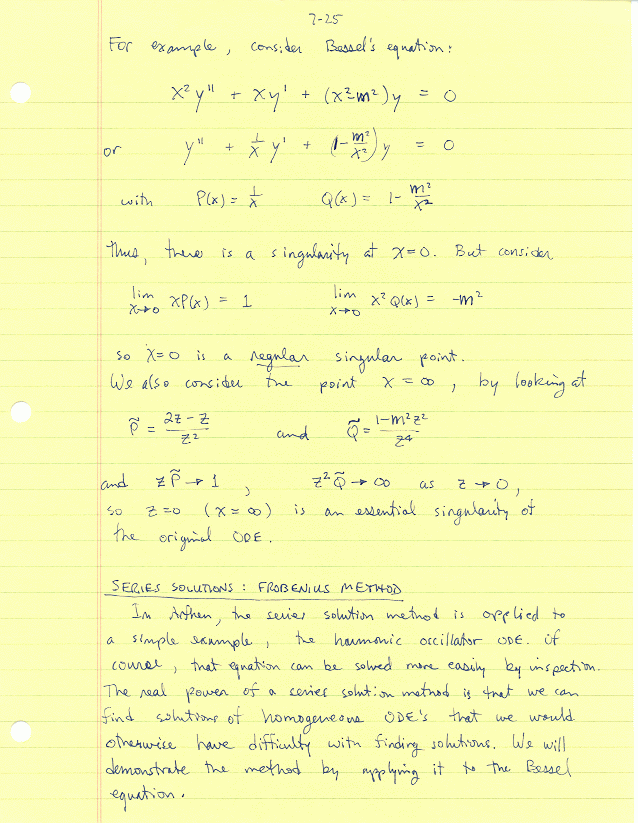 7-25
For example, consider Bessel's equation:
x² y'' + xy' + (x²-m²)y = 0
or y'' + 1/x y' + (1-m²/x²)y = 0
with P(x) = 1/x Q(x) = 1- m²/x²
Thus, there is a singularity at x=0. But consider
lim x→0 xP(x) = 1 lim x→0 x²Q(x) = -m²
so x=0 is a regular singular point.
We also consider the point x = ∞, by looking at
P̃ = 2z-z/z² and Q̃ = 1-m²z²/z⁴
and zP̃ → 1, z²Q̃ → ∞ as z → 0,
so z=0 (x=∞) is an essential singularity of
the original ODE.
SERIES SOLUTIONS: FROBENIUS METHOD
In Arfken, the series solution method is applied to
a simple example, the harmonic oscillator ODE. Of
course, that equation can be solved more easily by inspection.
The real power of a series solution method is that we can
find solutions of homogeneous ODE's that we would
otherwise have difficulty with finding solutions. We will
demonstrate the method by applying it to the Bessel
equation.